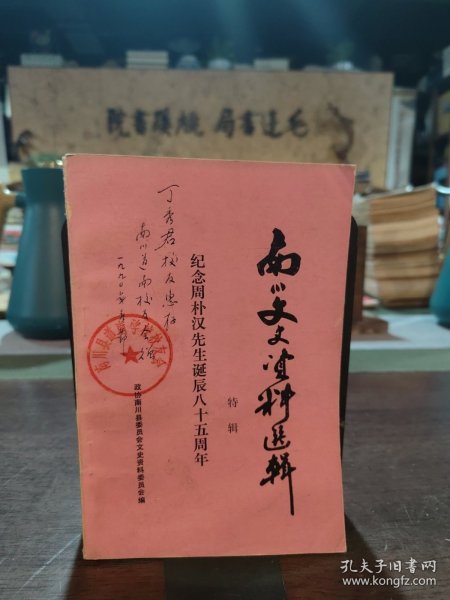 毛达書局 旋璞書院
南川文史资料选辑
特辑
纪念周朴汉先生诞辰八十五周年
政协南川县委员会文史资料委员会编
丁秀君校友惠存
南川道南校友会
一九九〇
孔夫子旧书网
www.kongfz.com